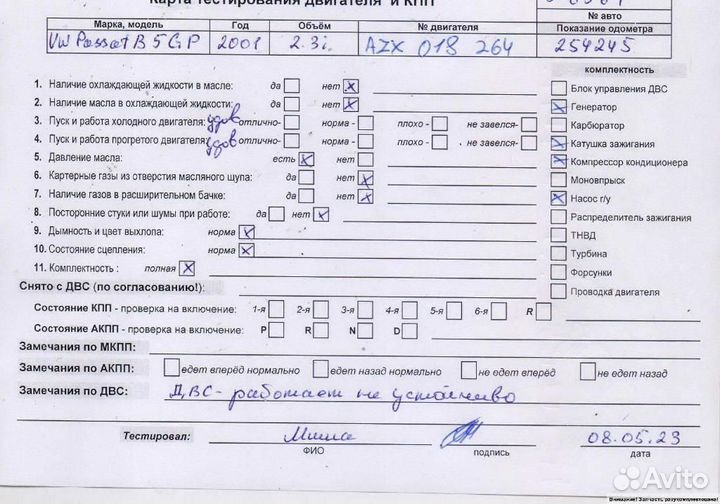 Карта тестирования двигателя и КПП
№ авто
Марка, модель Год Объём № двигателя Показание одометра
VW Passat B5 GP 2001 2.3i AZX 018 264 254245
комплектность
1. Наличие охлаждающей жидкости в масле: да нет x
2. Наличие масла в охлаждающей жидкости: да нет x
3. Пуск и работа холодного двигателя: удов отлично- норма - плохо - не завелся-
4. Пуск и работа прогретого двигателя: удов отлично- норма - плохо - не завелся-
5. Давление масла: есть x нет
6. Картерные газы из отверстия масляного щупа: да нет x
7. Наличие газов в расширительном бачке: да нет x
8. Посторонние стуки или шумы при работе: да нет x
9. Дымность и цвет выхлопа: норма x
10. Состояние сцепления: норма x
11. Комплектность : полная x
Блок управления ДВС
x Генератор
Карбюратор
x Катушка зажигания
x Компрессор кондиционера
Моновпрыск
x Насос г/у
Распределитель зажигания
ТНВД
Турбина
Форсунки
Проводка двигателя
Снято с ДВС (по согласованию!):
Состояние КПП - проверка на включение: 1-я 2-я 3-я 4-я 5-я 6-я R
Состояние АКПП - проверка на включение: P R N D
Замечания по МКПП:
Замечания по АКПП: едет вперёд нормально едет назад нормально не едет вперёд не едет назад
Замечания по ДВС: ДВС - работает не устойчиво
Тестировал: Миша 08.05.23
ФИО подпись дата
Avito